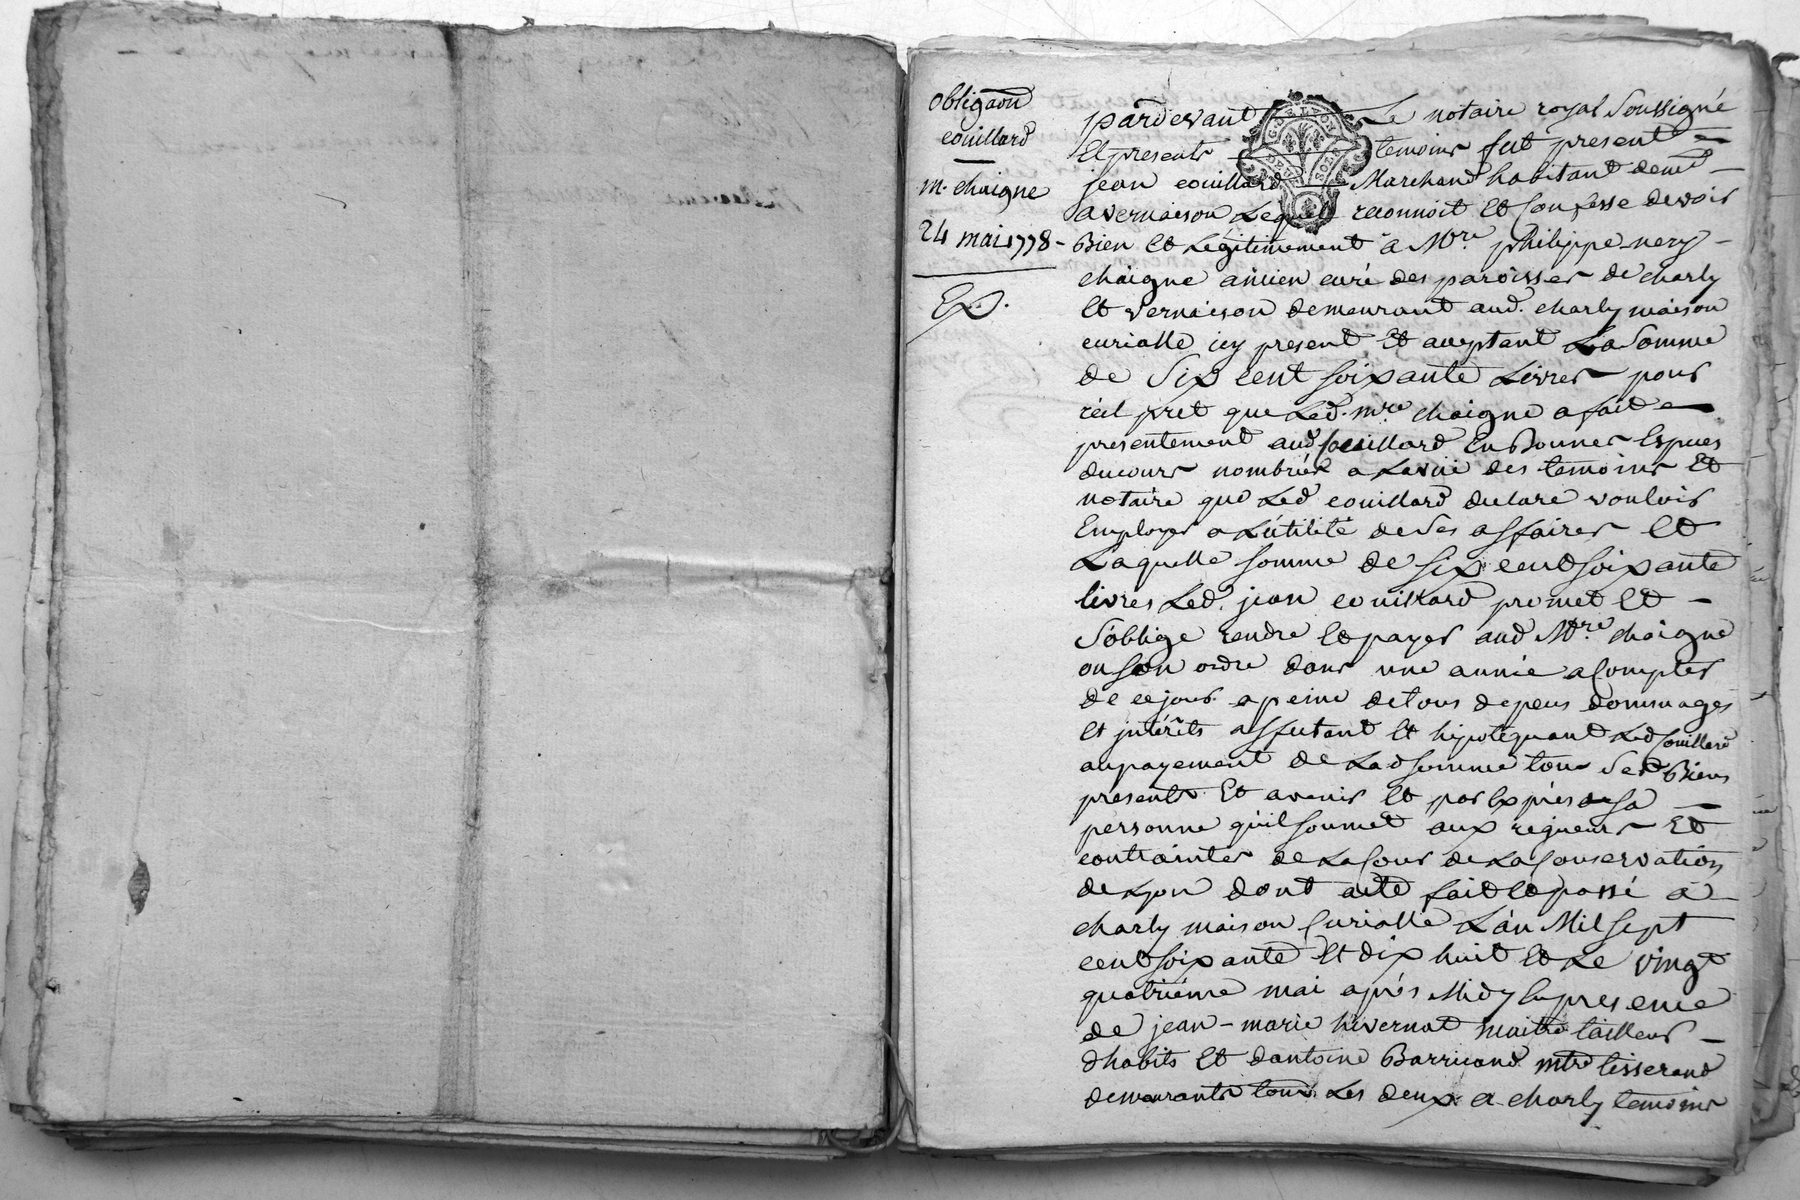 obligaõn
couillard
m. chaigne
24 mai 1778 -
Exp.
pardevant Le notaire royal Soussigné
Et presents temoins fut present
jean couillard Marchand habitant demt
a vernaison Lequel reconnoit Et Confesse devoir
Bien Et Légitimement a Mre philippe nery
chaigne ancien curé des paroisses de charly
Et vernaison demeurant aud. charly maison
curialle icy present Et aceptant La Somme
de Six cent soixante Livres pour
réel pret que Led. mre chaigne a fait
presentement aud couillard En Bonnes Espuces
ducours nombrées a La vüe des temoins Et
notaire que Led couillard declare vouloir
Employer a Lutilité de Ses affaires Et
Laquelle somme de six cent soixante
livres Led. jean couillard promet Et
S'oblige rendre Et payer aud Mtre chaigne
ou son ordre dans une année a Compter
de ce jour a peine de tous depens dommages
Et intérêts affectant Et hipotéquant Led Couillard
au payement de Lad somme tous Ses Biens
presents Et avenir Et par Exprès sa
personne qu'il soumet aux rigueurs Et
contraintes de La Cour de La Conservation
de Lyon dont acte fait Et passé a
charly maison Curialle L'an Mil sept
cent soixante Et dix huit Et Le vingt
quatriéme mai après Midy En presence
de jean-marie hivernat maitre tailleur
dhabits Et dantoine Barricand mtre tisserand
demeurants tous Les deux a charly temoins
GUE LYON
DEUX SOLS